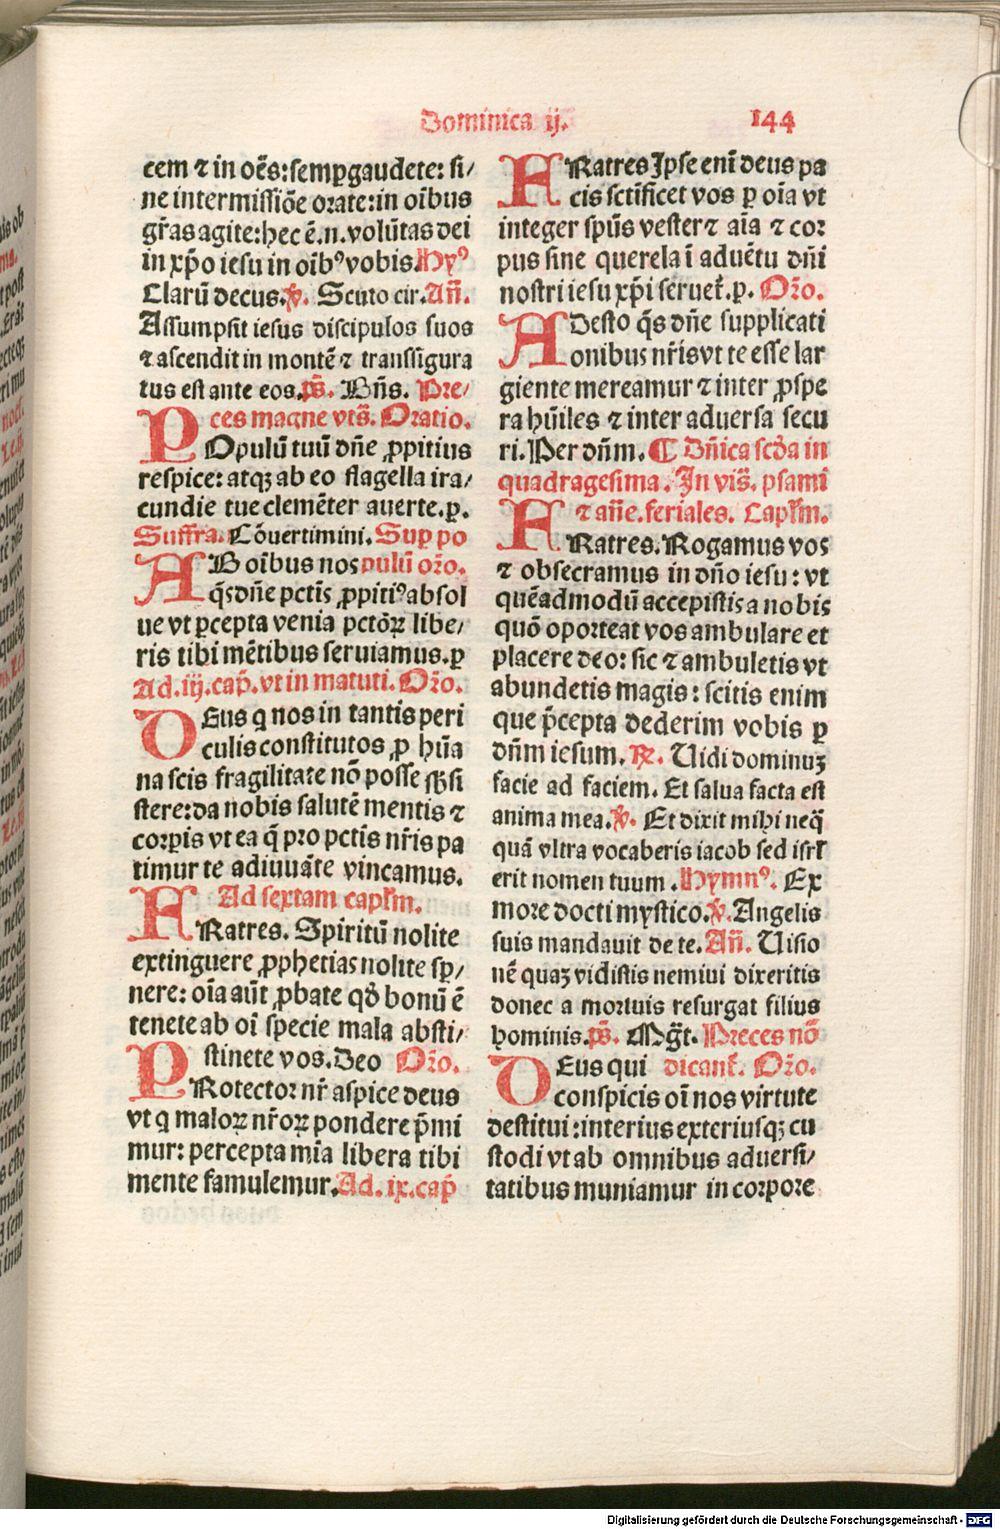 Dominica ij. 144
cem ⁊ in oēs: semꝑ gaudete: si/
ne intermissiōe orate: in oībus
gr̄as agite: hec ē .n. volūtas dei
in xp̄o iesu in oībꝰ vobis. Hyꝰ
Clarū decus. ℣. Scuto cir. An̄.
Assumpsit iesus discipulos suos
⁊ ascendit in montē ⁊ transfigura
tus est ante eos. ps̄. Bn̄s. Pre/
ces magne vts̄. Oratio.
POpulū tuū dn̄e ꝓpitius
respice: atqꝫ ab eo flagella ira/
cundie tue clemēter auerte. ꝑ.
Suffra. Cōuertimini. Suꝑ po
pulū or̄o.
AB oībus nos
q̄s dn̄e pctīs ꝓpitiꝰ absol
ue vt ꝑcepta venia pctōꝝ libe/
ris tibi mētibus seruiamus. ꝑ
Ad .iij. cap̄. vt in matuti. Or̄o.
DEus q nos in tantis peri
culis constitutos ꝓ hūa
na scis fragilitate nō posse sb̄si
stere: da nobis salutē mentis ⁊
corꝑis vt ea q̄ pro pctis nr̄is pa
timur te adiuuāte vincamus.
Ad sextam capl̄m.
FRatres. Spiritū nolite
extinguere ꝓphetias nolite sꝑ/
nere: oīa aūt ꝓbate qd̄ bonū ē
tenete ab oī specie mala absti/
stinete vos. Deo Or̄o.
PRotector nr̄ aspice deus
vt q maloꝝ nr̄oꝝ pondere p̄mi
mur: percepta mīa libera tibi
mente famulemur. Ad .ix. cap̄
FRatres Ipse enī deus pa
cis sctīficet vos ꝑ oīa vt
integer spūs vester ⁊ aīa ⁊ cor
pus sine querela ī aduētu dn̄i
nostri iesu xp̄i seruet̄. ꝑ. Or̄o.
ADesto q̄s dn̄e supplicati
onibus nr̄is vt te esse lar
giente mereamur ⁊ inter ꝓspe
ra hūiles ⁊ inter aduersa secu
ri. Per dn̄m. ¶ Dn̄ica scd̄a in
quadragesima. In vis̄. psami
⁊ an̄e. feriales. Capl̄m.
FRatres. Rogamus vos
⁊ obsecramus in dn̄o iesu: vt
quēadmodū accepistis a nobis
quō oporteat vos ambulare et
placere deo: sic ⁊ ambuletis vt
abundetis magis: scitis enim
que p̄cepta dederim vobis ꝑ
dn̄m iesum. ℟. Uidi dominuꝫ
facie ad faciem. Et salua facta est
anima mea. ℣. Et dixit mihi neq̄
quā vltra vocaberis iacob sed isrl̄
erit nomen tuum. Hymnꝰ. Ex
more docti mystico. ℣. Angelis
suis mandauit de te. An̄. Uisio
nē quaꝫ vidistis nemini dixeritis
donec a mortuis resurgat filius
hominis. ps̄. Mgt̄. Preces nō
dicant̄. Or̄o.
DEus qui
conspicis oī nos virtute
destitui: interius exteriusqꝫ cu
stodi vt ab omnibus aduersi/
tatibus muniamur in corpore
Digitalisierung gefördert durch die Deutsche Forschungsgemeinschaft - DFG